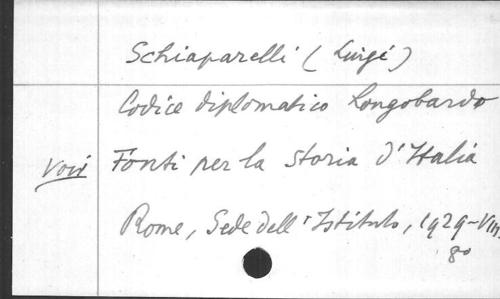 Schiaparelli (Luigi)
Codice diplomatico Longobardo
Voir Fonti per la storia d'Italia
Rome, Sede dell'Istituto, 1929-VIII.
8o